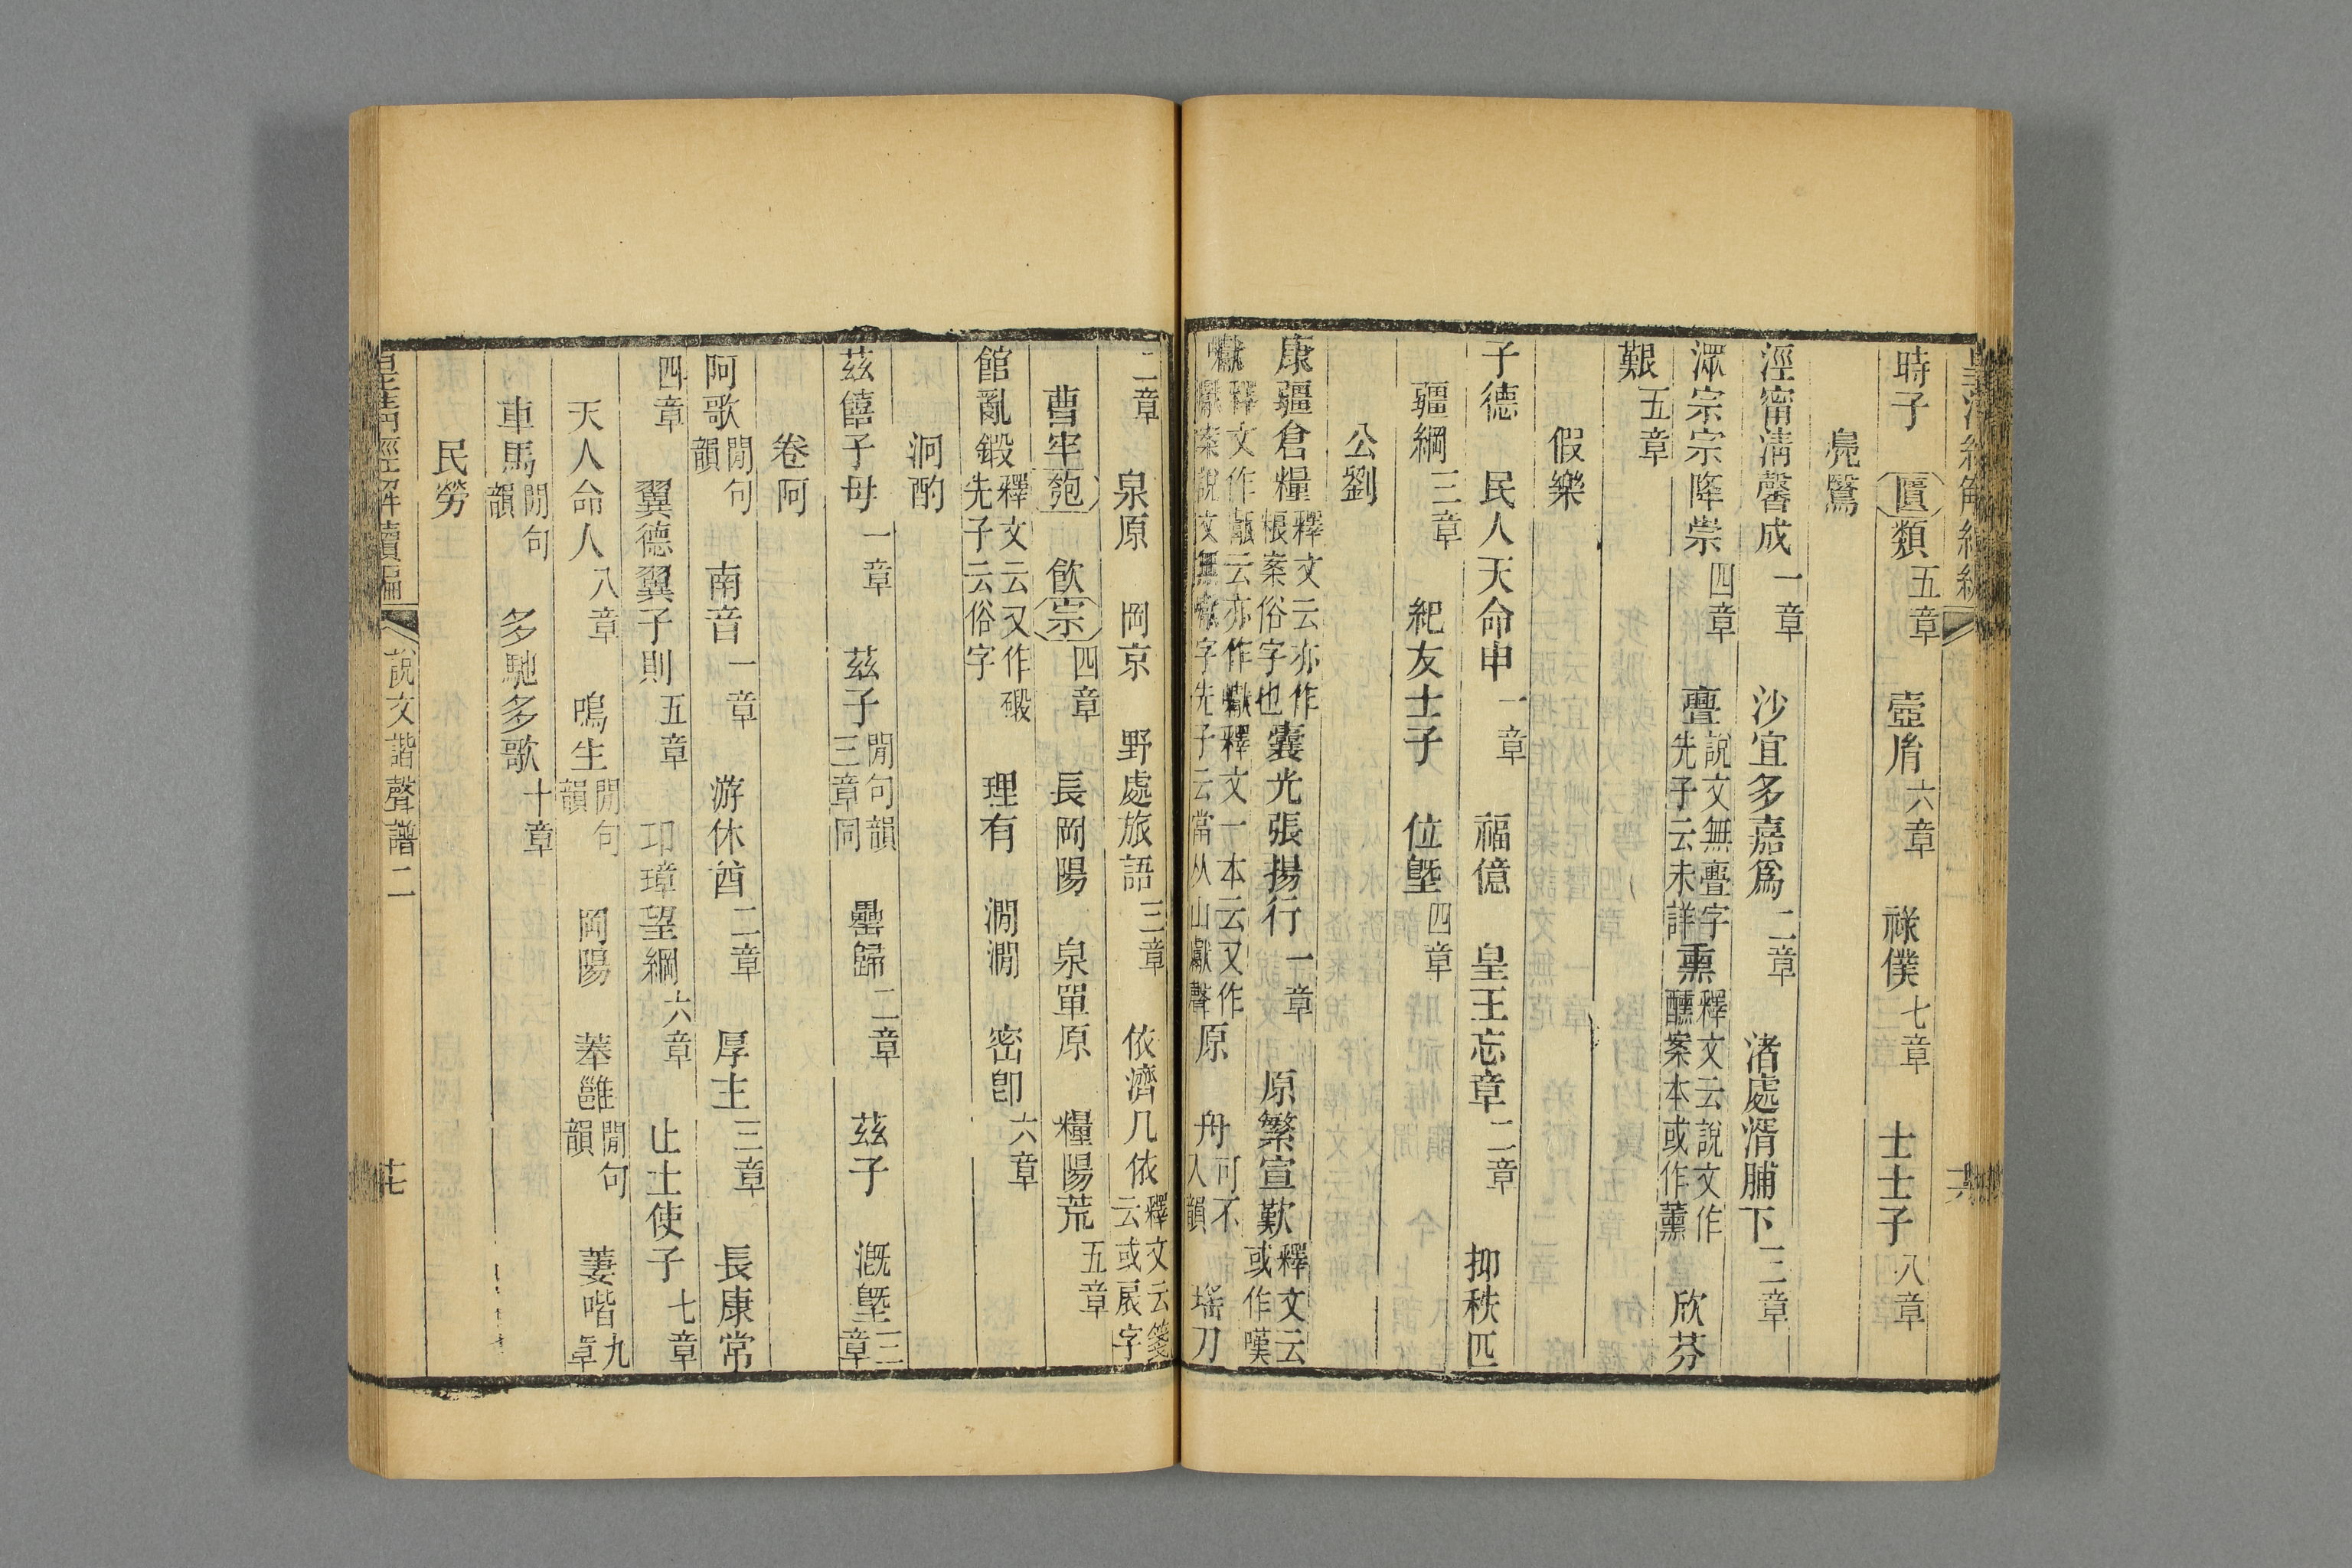 時子　匱類五章　壺胤六章　祿僕七章　士士子八章
鳧鷖
涇甯淸馨成一章　沙宜多嘉爲二章　渚處湑脯下三章
潀宗宗降崇四章　亹說文無亹字先子云未詳熏釋文云說文作醺案本或作薰　欣芬
艱五章
假樂
子德　民人天命申一章　福億　皇王忘章二章　抑秩匹
疆綱三章　紀友士子　位塈四章
公劉
康疆倉糧釋文云亦作粻案俗字也囊光張揚行一章　原繁宣歎釋文云或作嘆
巘釋文作甗云亦作巘釋文一本云又作巘案說文無巘字先子云當从山獻聲原　舟可不入韻　瑤刀
二章　泉原　岡京　野處旅語三章　依濟几依釋文云箋云或扆字
曹牢匏　飮宗四章　長岡陽　泉單原　糧陽荒五章
館亂鍛釋文云又作碫先子云俗字　理有　澗澗　密卽六章
泂酌
茲饎子母一章　茲子閒句韻三章同　罍歸二章　茲子　漑塈三章
卷阿
阿歌閒句韻　南音一章　游休酋二章　厚主三章　長康常
四章　翼德翼子則五章　卬璋望綱六章　止士使子七章
天人命人八章　鳴生閒句韻　岡陽　菶雝閒句韻　萋喈九章
車馬閒句韻　多馳多歌十章
民勞
說文諧聲譜二